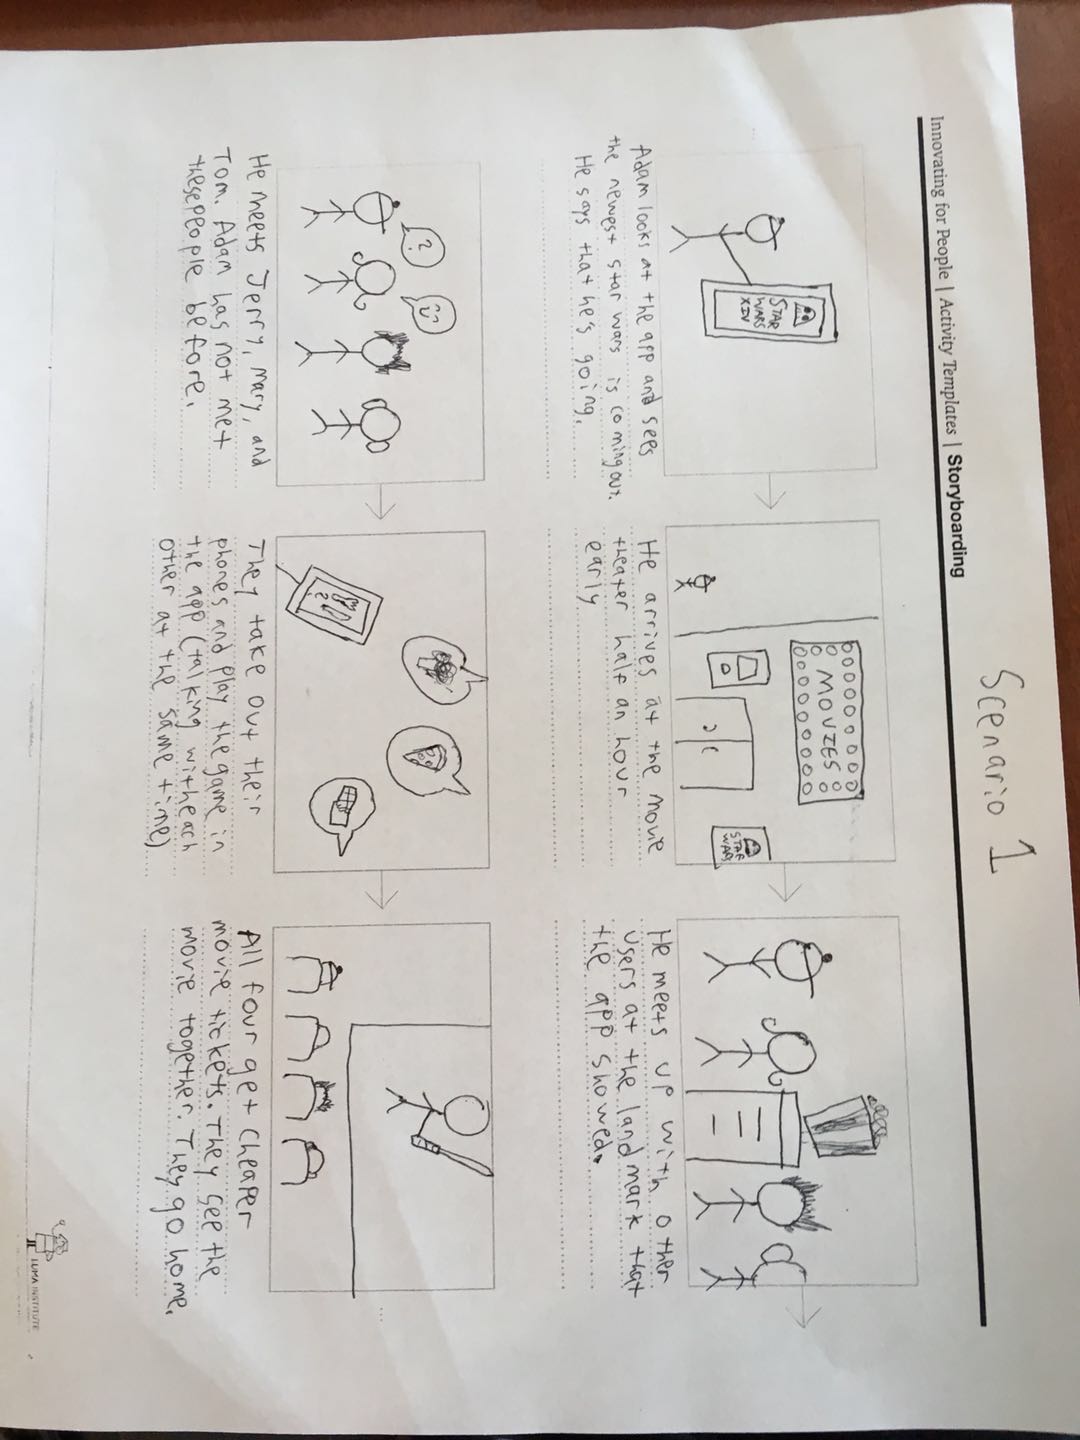 Scenario 1
Innovating for People | Activity Templates | Storyboarding
STAR
WARS
XIV
MOVIES
STAR
WARS
Adam looks at the app and sees
the newest star wars is coming out.
He says that he's going.
He arrives at the movie
theater half an hour
early
He meets up with other
users at the landmark that
the app showed.
?
He meets Jerry, Mary, and
Tom. Adam has not met
these people before.
They take out their
phones and play the game in
the app (talking with each
other at the same time)
All four get cheaper
movie tickets. They see the
movie together. They go home.
LUMA INSTITUTE